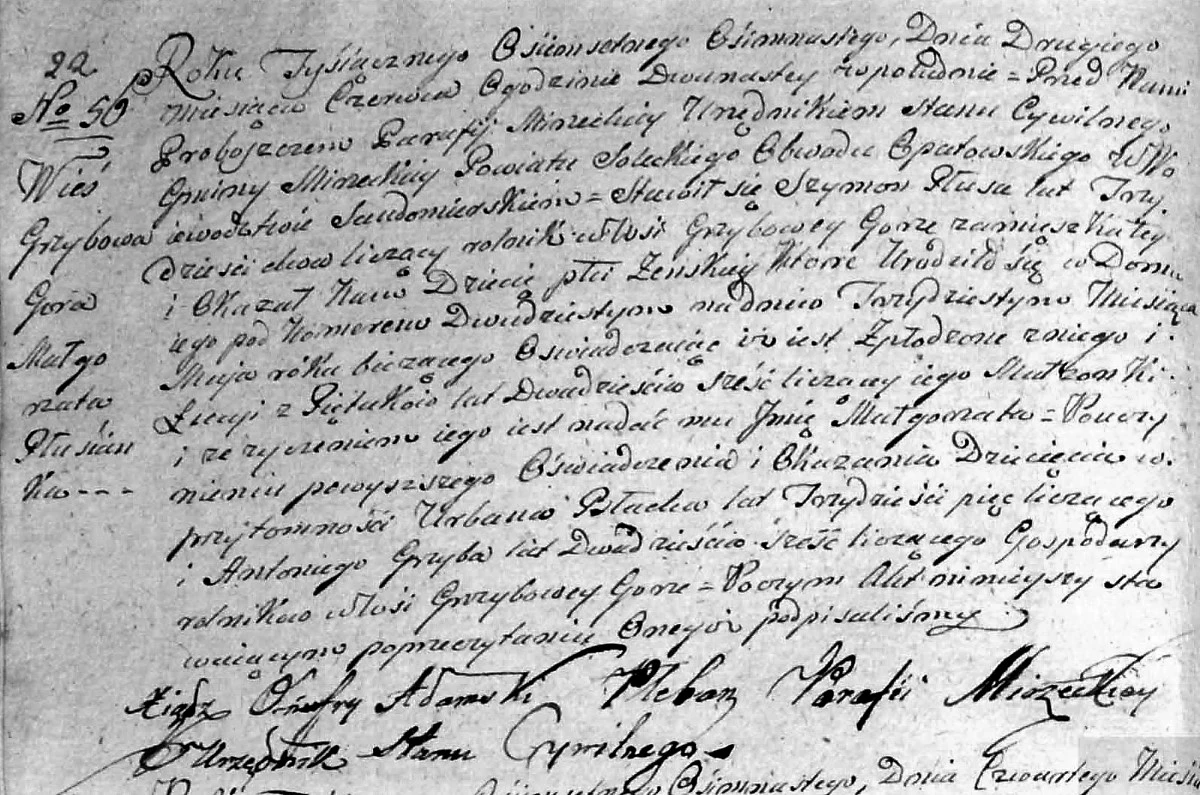 22
No 56
Wieś
Grzybowa
Gora
Małgo
rzata
Płusion
ka - - -
Roku Tysiącznego Osiemsetnego Osimnastego, Dnia Drugiego
Miesiąca Czerwca Ogodzinie Dwunastey wpołudnie = Przed Nami
Proboszczem Parafij Mirzeckiy Urzędnikiem Stanu Cywilnego
Gminy Mirzeckiy Powiatu Soleckiego Obwodu Opatowskiego w Wo
iewodztwie Sandomierskiem = Stawił się Szymon Płusa lat Trzy
dzieści dwa liczący rolnik w Wsi Grzybowey Gorze zamieszkałey
i Okazał Nam Dziecie płci Zenskiey Ktore Urodziło się w Domu
iego pod Numerem Dwudziestym nadniu Trzydziestym Miesiąca
Maja roku bieżącego Oswiadczaiąc iż iest Zpłodzone zniego i
Łucyi z Piętaków lat Dwadzieścia sześć liczący iego Małzonki
i ze zyczeniem iego iest nadać mu Jmię Małgorzata = Pouczy
nieniu powyższego Oświadczenia i Okazania Dziecięcia w
przytomności Urbana lat Trzydzieści pięć liczącego
i Antoniego Grzyba lat Dwadzieścia sześć liczącego Gospodarzy
rolnikow w Wsi Grzybowey Gorze = Poczym Akt ninieyszy sta
waiącym poprzeczytaniu Onegoż podpisaliśmy
Xiądz Onufry Adamski Pleban Parafii Mirzeckiey
Urzędnik Stanu Cywilnego
Osimnastego, Dnia Czwartego